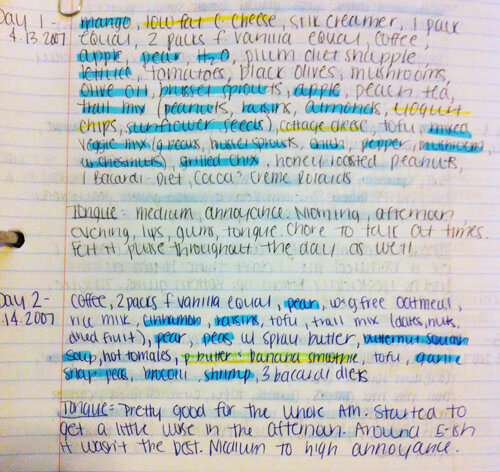 Day 1 - mango, low fat c cheese, silk creamer, 1 pack
4.13.2007 equal, 2 packs f vanilla equal, coffee,
apple, pear, H2O, plum diet snapple,
lettuce, tomatoes, black olives, mushrooms,
olive oil, brussel sprouts, apple, peach tea,
trail mix (peanuts, raisins, almonds, yogurt
chips, sunflower seeds), cottage cheese, tofu, mixed
veggie mix (g beans, brussel sprouts, onion, pepper, mushrooms
w chestnuts), grilled chix, honey roasted peanuts,
1 Bacardi + Diet, Cocoa + Creme Rolaids
Tongue = medium, annoyance. Morning, afternoon
evening, lips, gums, tongue. Chore to talk at times.
Felt it pulse throughout the day as well.
Day 2 - coffee, 2 packs f vanilla equal, pear, free oatmeal,
.14.2007 rice milk, cinnamon, raisins, tofu, trail mix (dates, nuts,
dried fruit), pear, peas w splau butter, butternut squash
soup, hot tamales, p butter + banana smoothie, tofu, garlic
snap peas, brocolli, shrimp, 3 bacardi diets
Tongue = Pretty good for the whole AM. Started to
get a little worse in the afternoon. Around 5-ish
it wasn't the best. Medium to high annoyance.